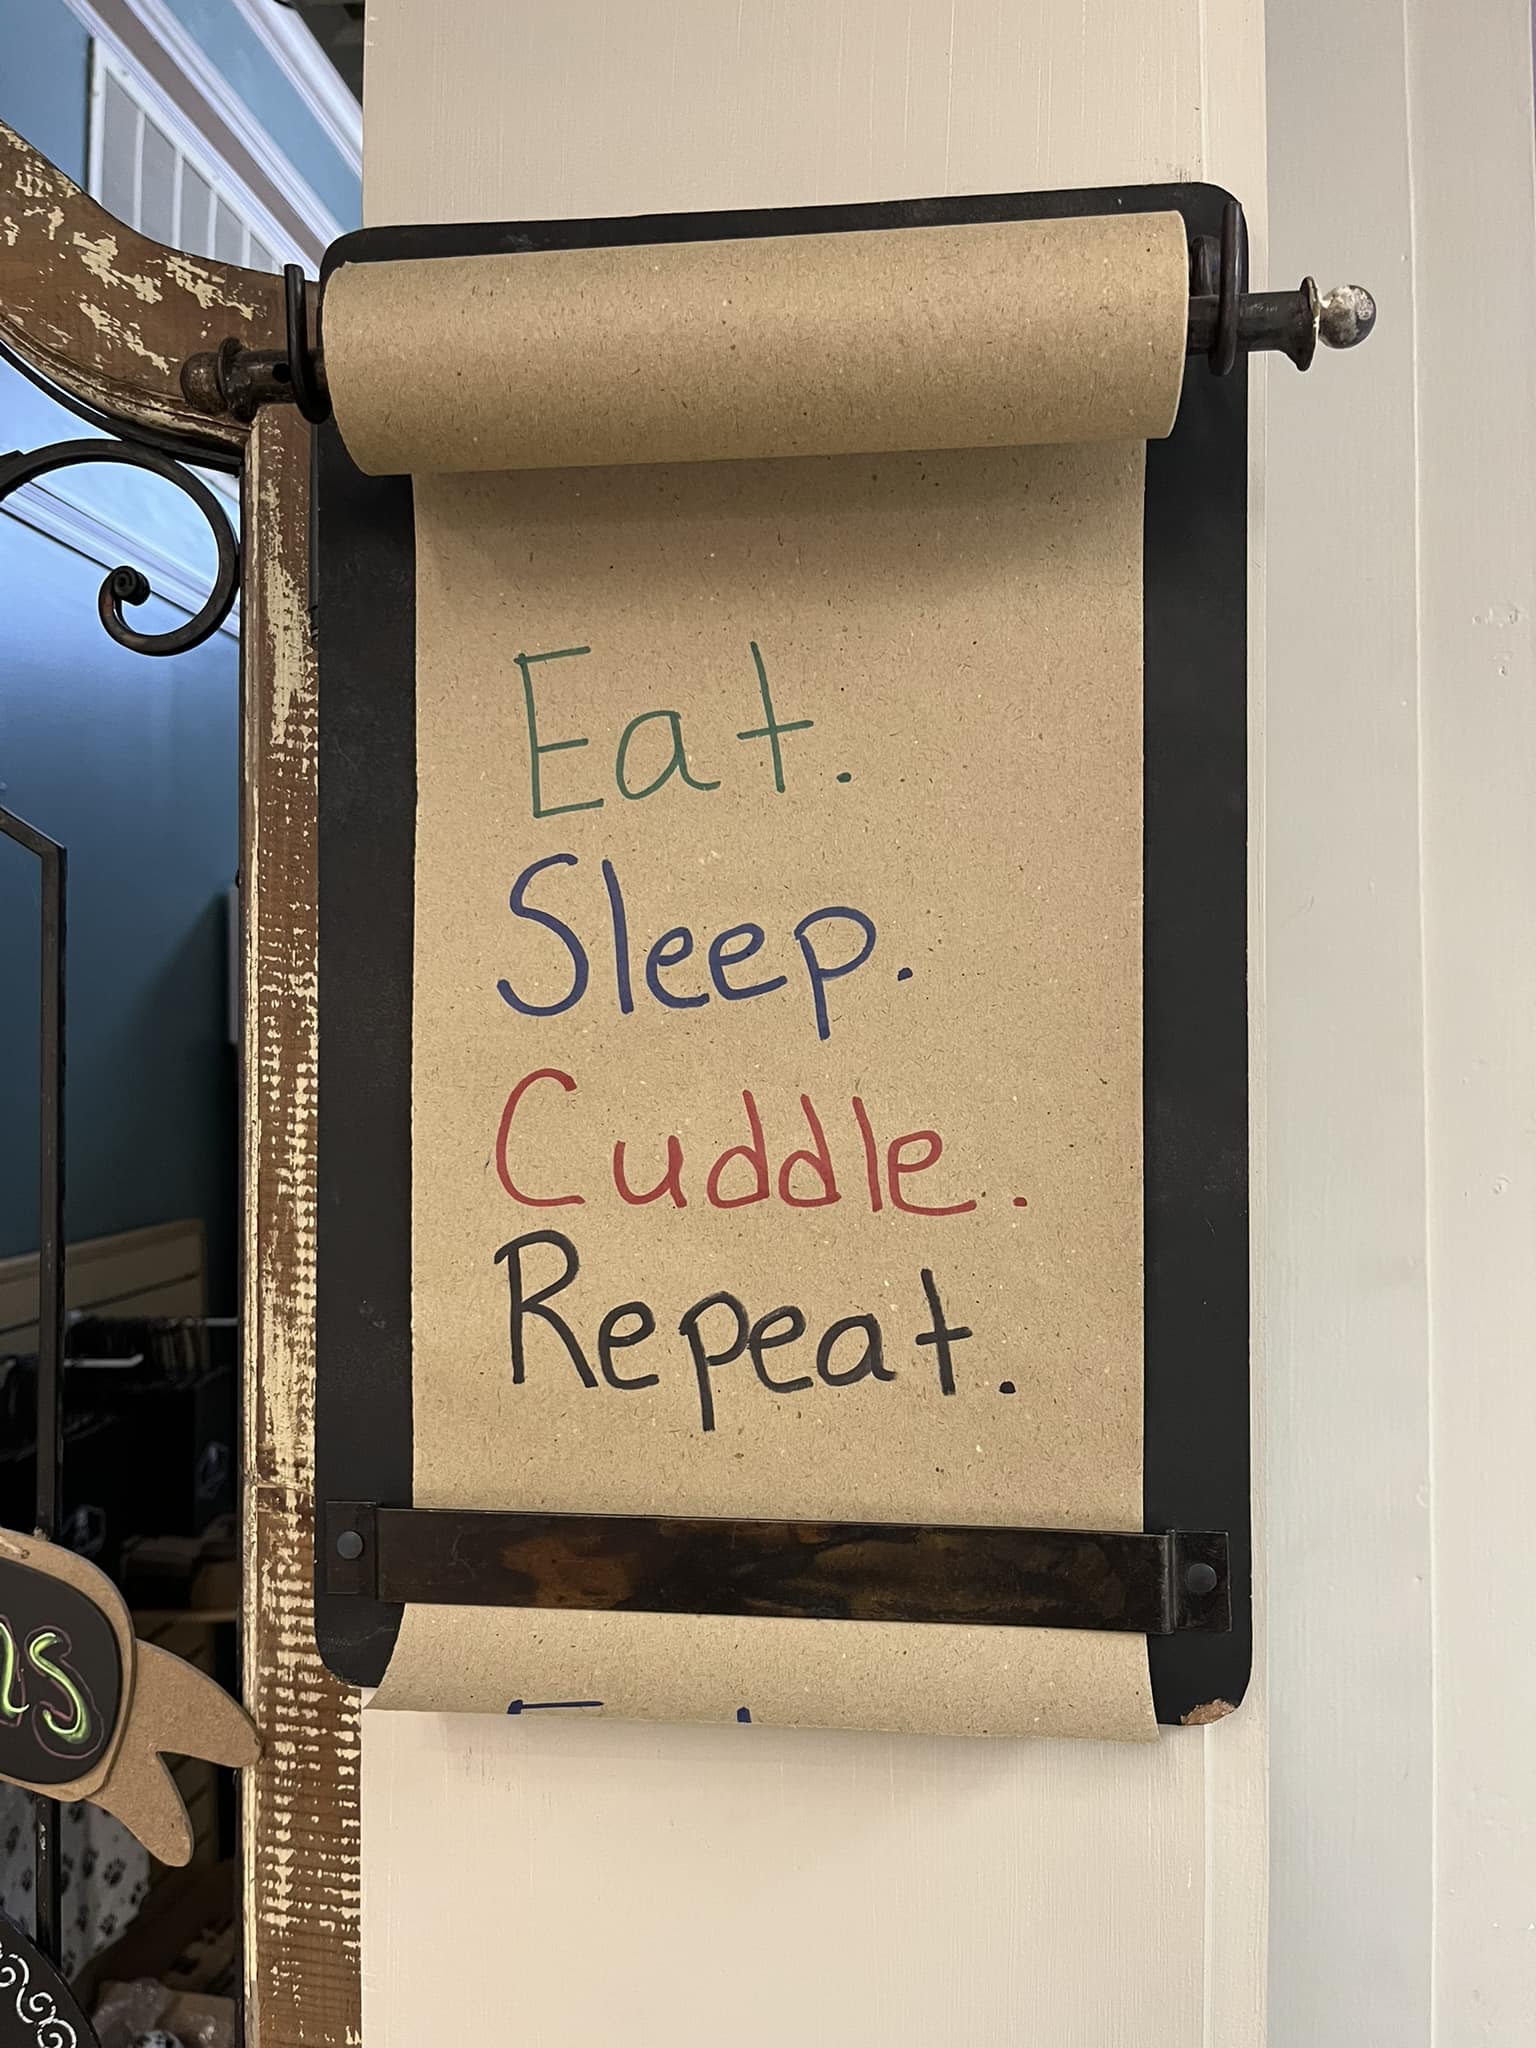 Eat.
Sleep.
Cuddle.
Repeat.